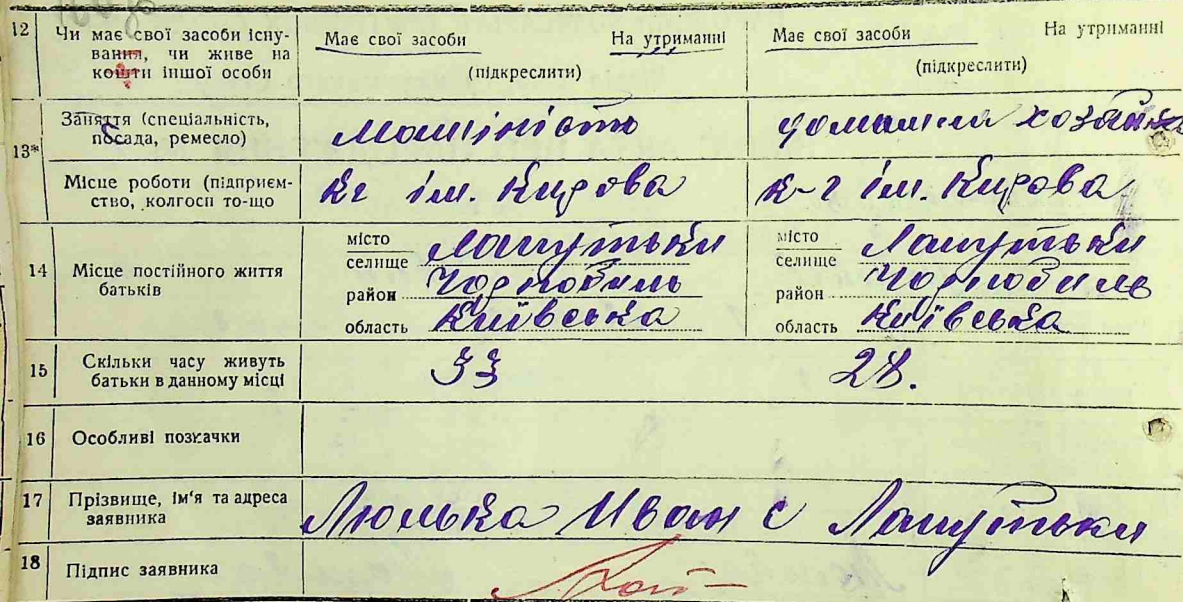 12 Чи має свої засоби існу-
вання, чи живе на
кошти іншої особи
Має свої засоби На утриманні
(підкреслити)
Має свої засоби На утриманні
(підкреслити)
13* Заняття (спеціальність,
посада, ремесло)
машіністо
домашня хозайка
Місце роботи (підприєм-
ство, колгосп то-що
кг ім. Кирова
к-г ім. Кирова
14 Місце постійного життя
батьків
місто
селище Лапутьки
район Чорнобиль
область Київська
місто
селище Лапутьки
район Чорнобиль
область Київська
15 Скільки часу живуть
батьки в данному місці
33
28.
16 Особливі позначки
17 Прізвище, ім'я та адреса
заявника
Люлька Иван с Лапутьки
18 Підпис заявника